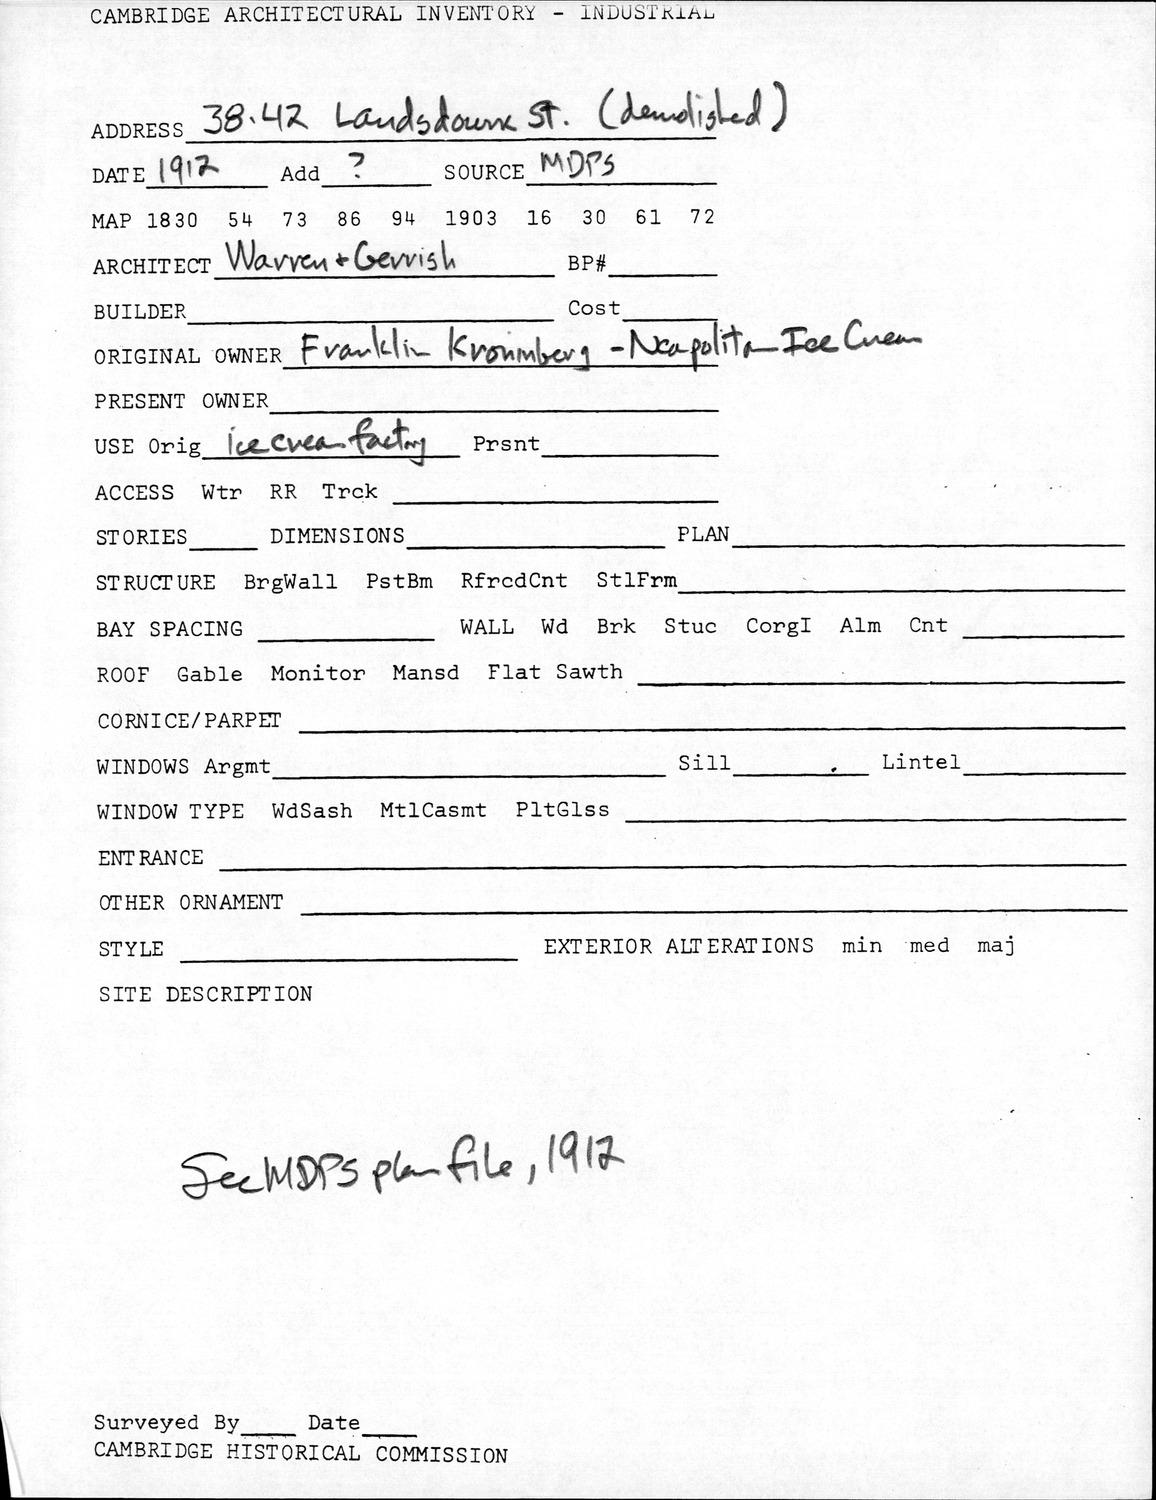 CAMBRIDGE ARCHITECTURAL INVENTORY - INDUSTRIAL
ADDRESS 38-42 Landsdowne St. (demolished)
DATE 1912 Add ? SOURCE MDPS
MAP 1830 54 73 86 94 1903 16 30 61 72
ARCHITECT Warren + Gerrish BP#
BUILDER Cost
ORIGINAL OWNER Franklin Kronmberg - Neapolitan Ice Cream
PRESENT OWNER
USE Orig ice cream factory Prsnt
ACCESS Wtr RR Trck
STORIES DIMENSIONS PLAN
STRUCTURE BrgWall PstBm RfrcdCnt StlFrm
BAY SPACING WALL Wd Brk Stuc CorgI Alm Cnt
ROOF Gable Monitor Mansd Flat Sawth
CORNICE/PARPET
WINDOWS Argmt Sill Lintel
WINDOW TYPE WdSash MtlCasmt PltGlss
ENTRANCE
OTHER ORNAMENT
STYLE EXTERIOR ALTERATIONS min med maj
SITE DESCRIPTION
See MDPS plan file, 1912
Surveyed By Date
CAMBRIDGE HISTORICAL COMMISSION